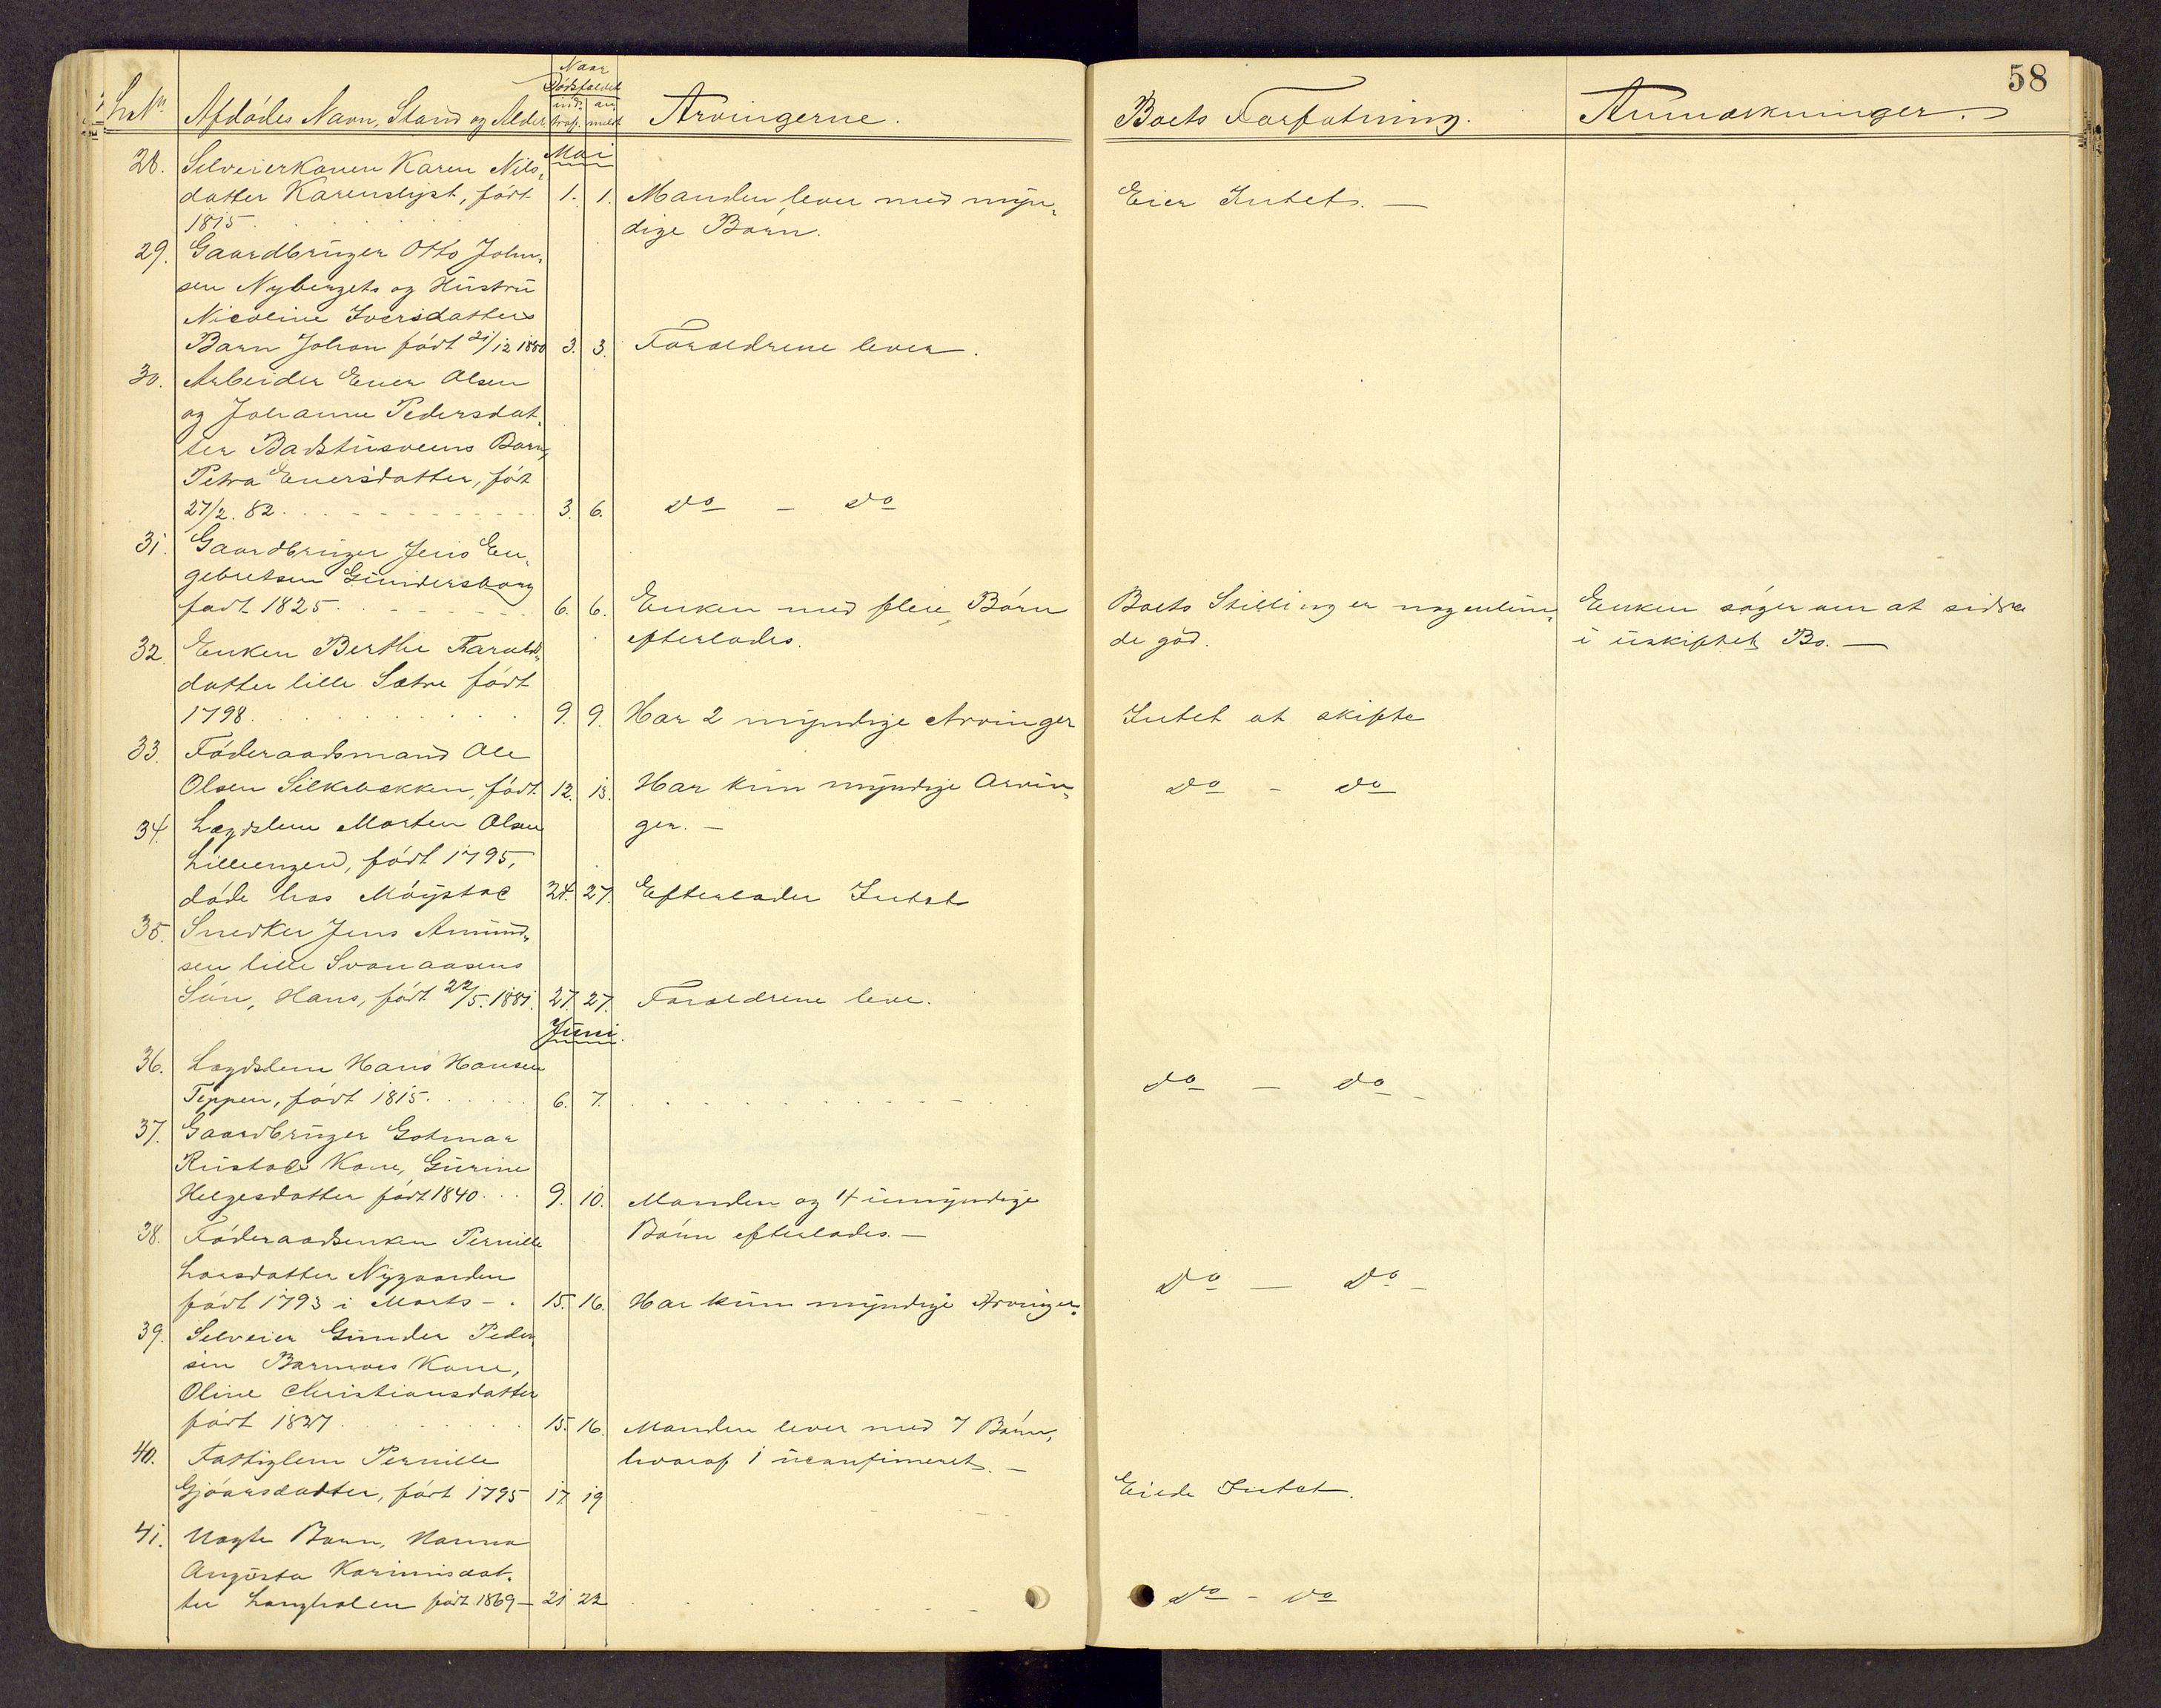 58
Naar
Dödsfaldet
LNr. Afdödes Navn, Stand og Alder indtraf. anmeldt Arvingerne. Boets Forfatning. Anmærkninger.
Mai
28. Selveierkonen Karen Nils-
datter Karenslyst, født 1. 1. Manden lever med myn- Eier Intet. —
1815 dige Børn.
29. Gaardbruger Otto John-
sen Nybergets og Hustru
Nicoline Iversdatters
Barn Johan født 21/12 1880 3. 3. Forældrene lever.
30. Arbeider Ener Olsen
og Johanne Pedersdat-
ter Badstusveens Barn,
Petra Enersdatter, født
27/2. 82. 3. 6. do — do
31. Gaardbruger Jens En-
gebretsen Gundersborg
født 1825. 6. 6. Enken med fleie Børn Boets Stilling er nogenlun- Enken søger om at sidde
efterlades. de god. i uskiftet Bo. —
32. Enken Berthe Haralds-
datter lille Sætre født
1798. 9. 9. Har 2 myndige Arvinger Intet at skifte
33. Föderaadsmand Ole
Olsen Silkebakken, født 12. 13. Har kun myndige Arvin- do — do
ger. —
34. Lægdslem Morten Olsen
Lilleengen, født 1795,
døde hos Möystad 24. 27. Efterlader Intet
35. Snedker Jens Amund-
sen lille Svenaasens
Søn, Hans, født 22/5. 1881. 27. 27. Forældrene leve.
Juni.
36. Lægdslem Hans Hansen
Teppen, født 1815. 6. 7. do — do —
37. Gaardbruger Gotmar
Rustads Kone, Gurine
Helgesdatter født 1840. 9. 10. Manden og 4 umyndige
Børn efterlades. —
38. Föderaadsenken Pernille
Larsdatter Nygaarden
født 1793 i Marts — 15. 16. Har kun myndige Arvinger. do — do —
39. Selveier Gunder Peder-
sen Barmoes Kone,
Oline Christiansdatter
født 1827 15. 16. Manden lever med 7 Børn,
hvoraf 1 uconfimeret. —
40. Fattiglem Pernille
Gjöarsdatter, født 1795 17. 19 Eiede Intet.
41. Uægte Barn, Hanna
Augusta Karinusdat-
ter Langholen født 1869 — 21 22 do — do